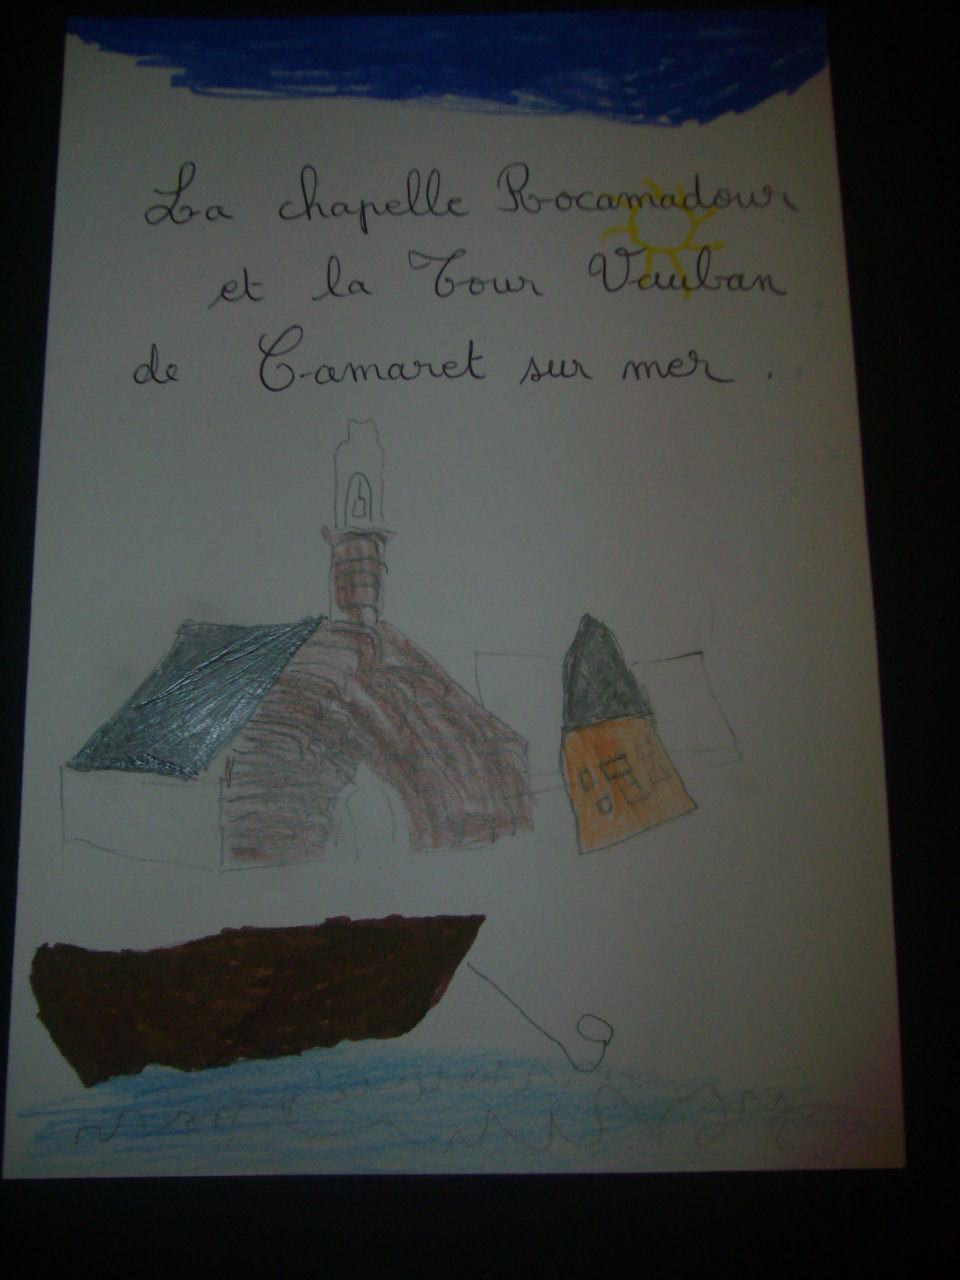 La chapelle Rocamadour
et la Tour Vauban
de Camaret sur mer .